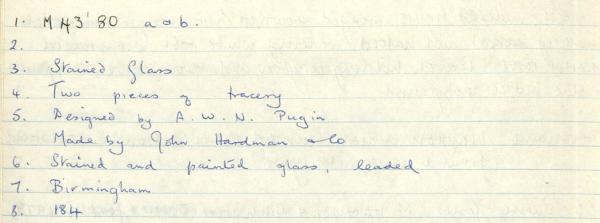 1. M43'80 a & b.
2.
3. Stained Glass
4. Two pieces of tracery
5. Designed by A. W. N. Pugin
Made by John Hardman & Co
6. Stained and painted glass, leaded
7. Birmingham
8. 184